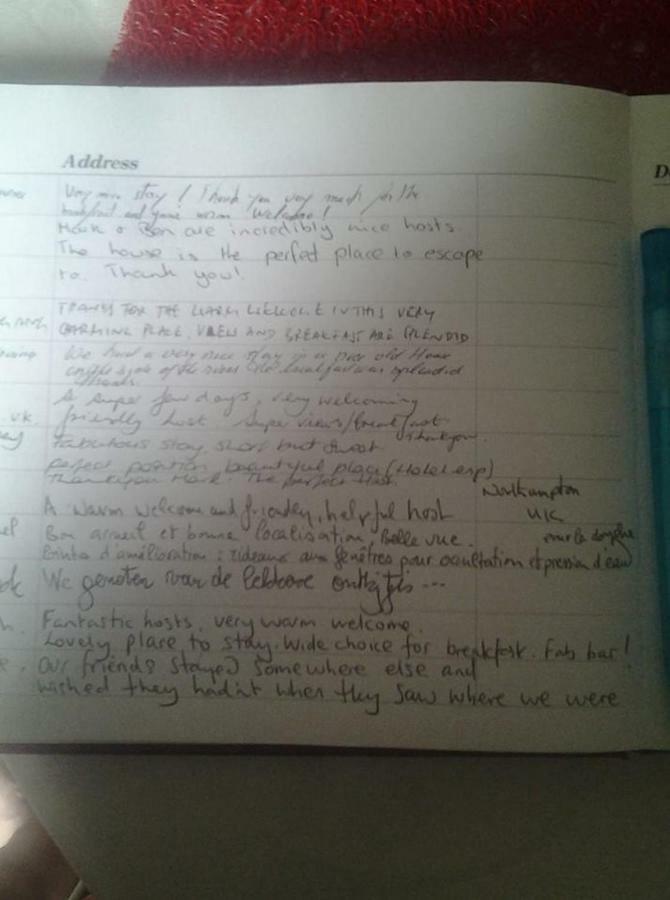 Address
D
Very nice stay! Thank you very much for the
breakfast and your warm welcome!
Mark & Ben are incredibly nice hosts.
The house is the perfect place to escape
to. Thank you!
THANKS FOR THE WARM WELCOME IN THIS VERY
CHARMING PLACE. VIEW AND BREAKFAST ARE SPLENDID
We had a very nice stay in a old House
on the side of the river. The breakfast was splendid
thanks.
A super few days, very welcoming
friendly host super views/breakfast
U.K.
Thankyou.
Fabulous stay, short but sweet
perfect position, beautiful place (Hotel esp)
Thankyou Mark. The perfect Host.
Northampton
UK
A warm welcome and friendly, helpful host
Bon acueil et bonne localisation, Belle vue.
Points d'amélioration : rideaux aux fenêtres pour occultation et pression d'eau
sur la douche
We genoten van de lekkere ontbijtjes ...
Fantastic hosts, very warm welcome.
Lovely place to stay. Wide choice for breakfast. Fab bar!
Our friends stayed somewhere else and
wished they hadn't when they saw where we were